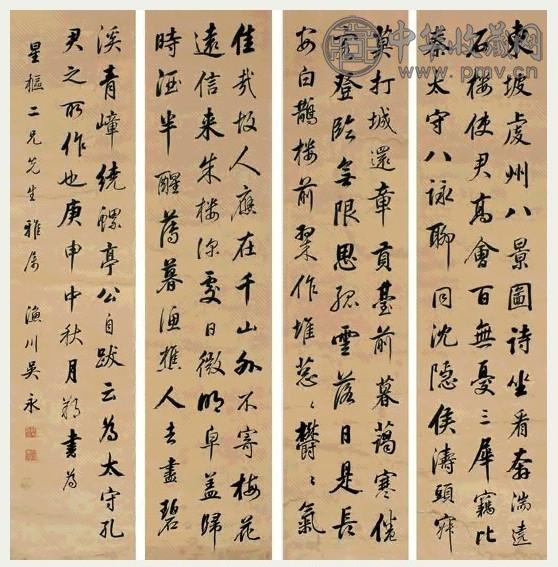 中华收藏网
www.pmv.cn
東坡虔州八景圖詩坐看奔湍遶
石樓使君髙會百無憂三犀竊比
秦太守八詠聊同沈隠侯濤頭寂
莫打城還章貢臺前暮藹寒倦
客登臨無限思孤雲落日是長
安白鵲樓前翠作堆葱〻鬱〻氣
佳哉故人應在千山外不寄梅花
遠信来朱樓深處日微明皁蓋歸
時酒半醒薄暮漁樵人去盡碧
溪青嶂繞螺亭公自跋云為太守孔
君之所作也庚申中秋月書為
星樞二兄先生雅屬 漁川吳永